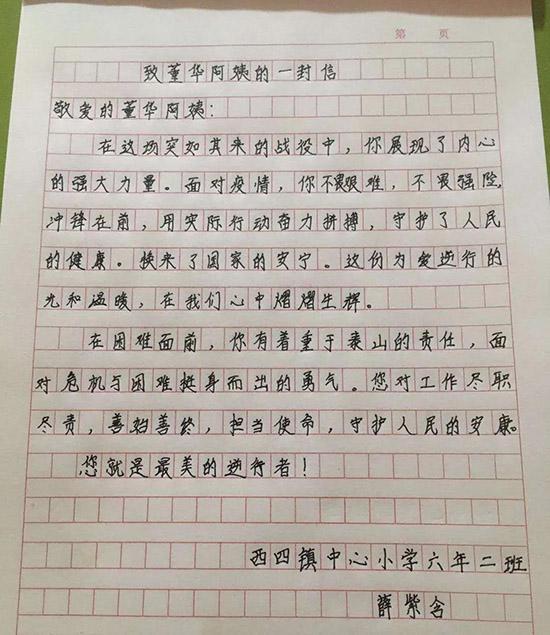 第 页
致董华阿姨的一封信
敬爱的董华阿姨：
在这场突如其来的战役中，你展现了内心
的强大力量。面对疫情，你不畏艰难，不畏强险，
冲锋在前，用实际行动奋力拼搏，守护了人民
的健康。换来了国家的安宁。这份为爱逆行的
光和温暖，在我们心中熠熠生辉。
在困难面前，你有着重于泰山的责任，面
对危机与困难挺身而出的勇气。您对工作尽职
尽责，善始善终，担当使命，守护人民的安康。
您就是最美的逆行者！
西四镇中心小学六年二班
薛紫含